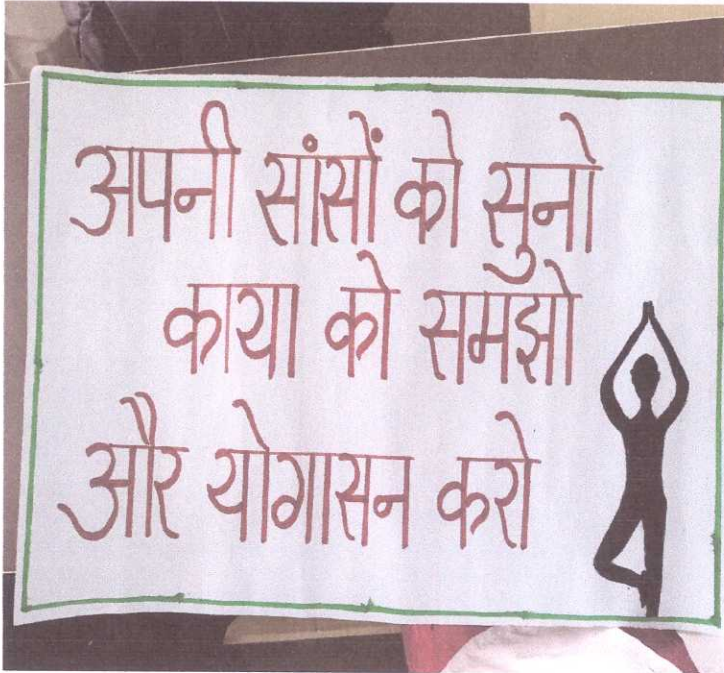 अपनी सांसों को सुनो
काया को समझो
और योगासन करो